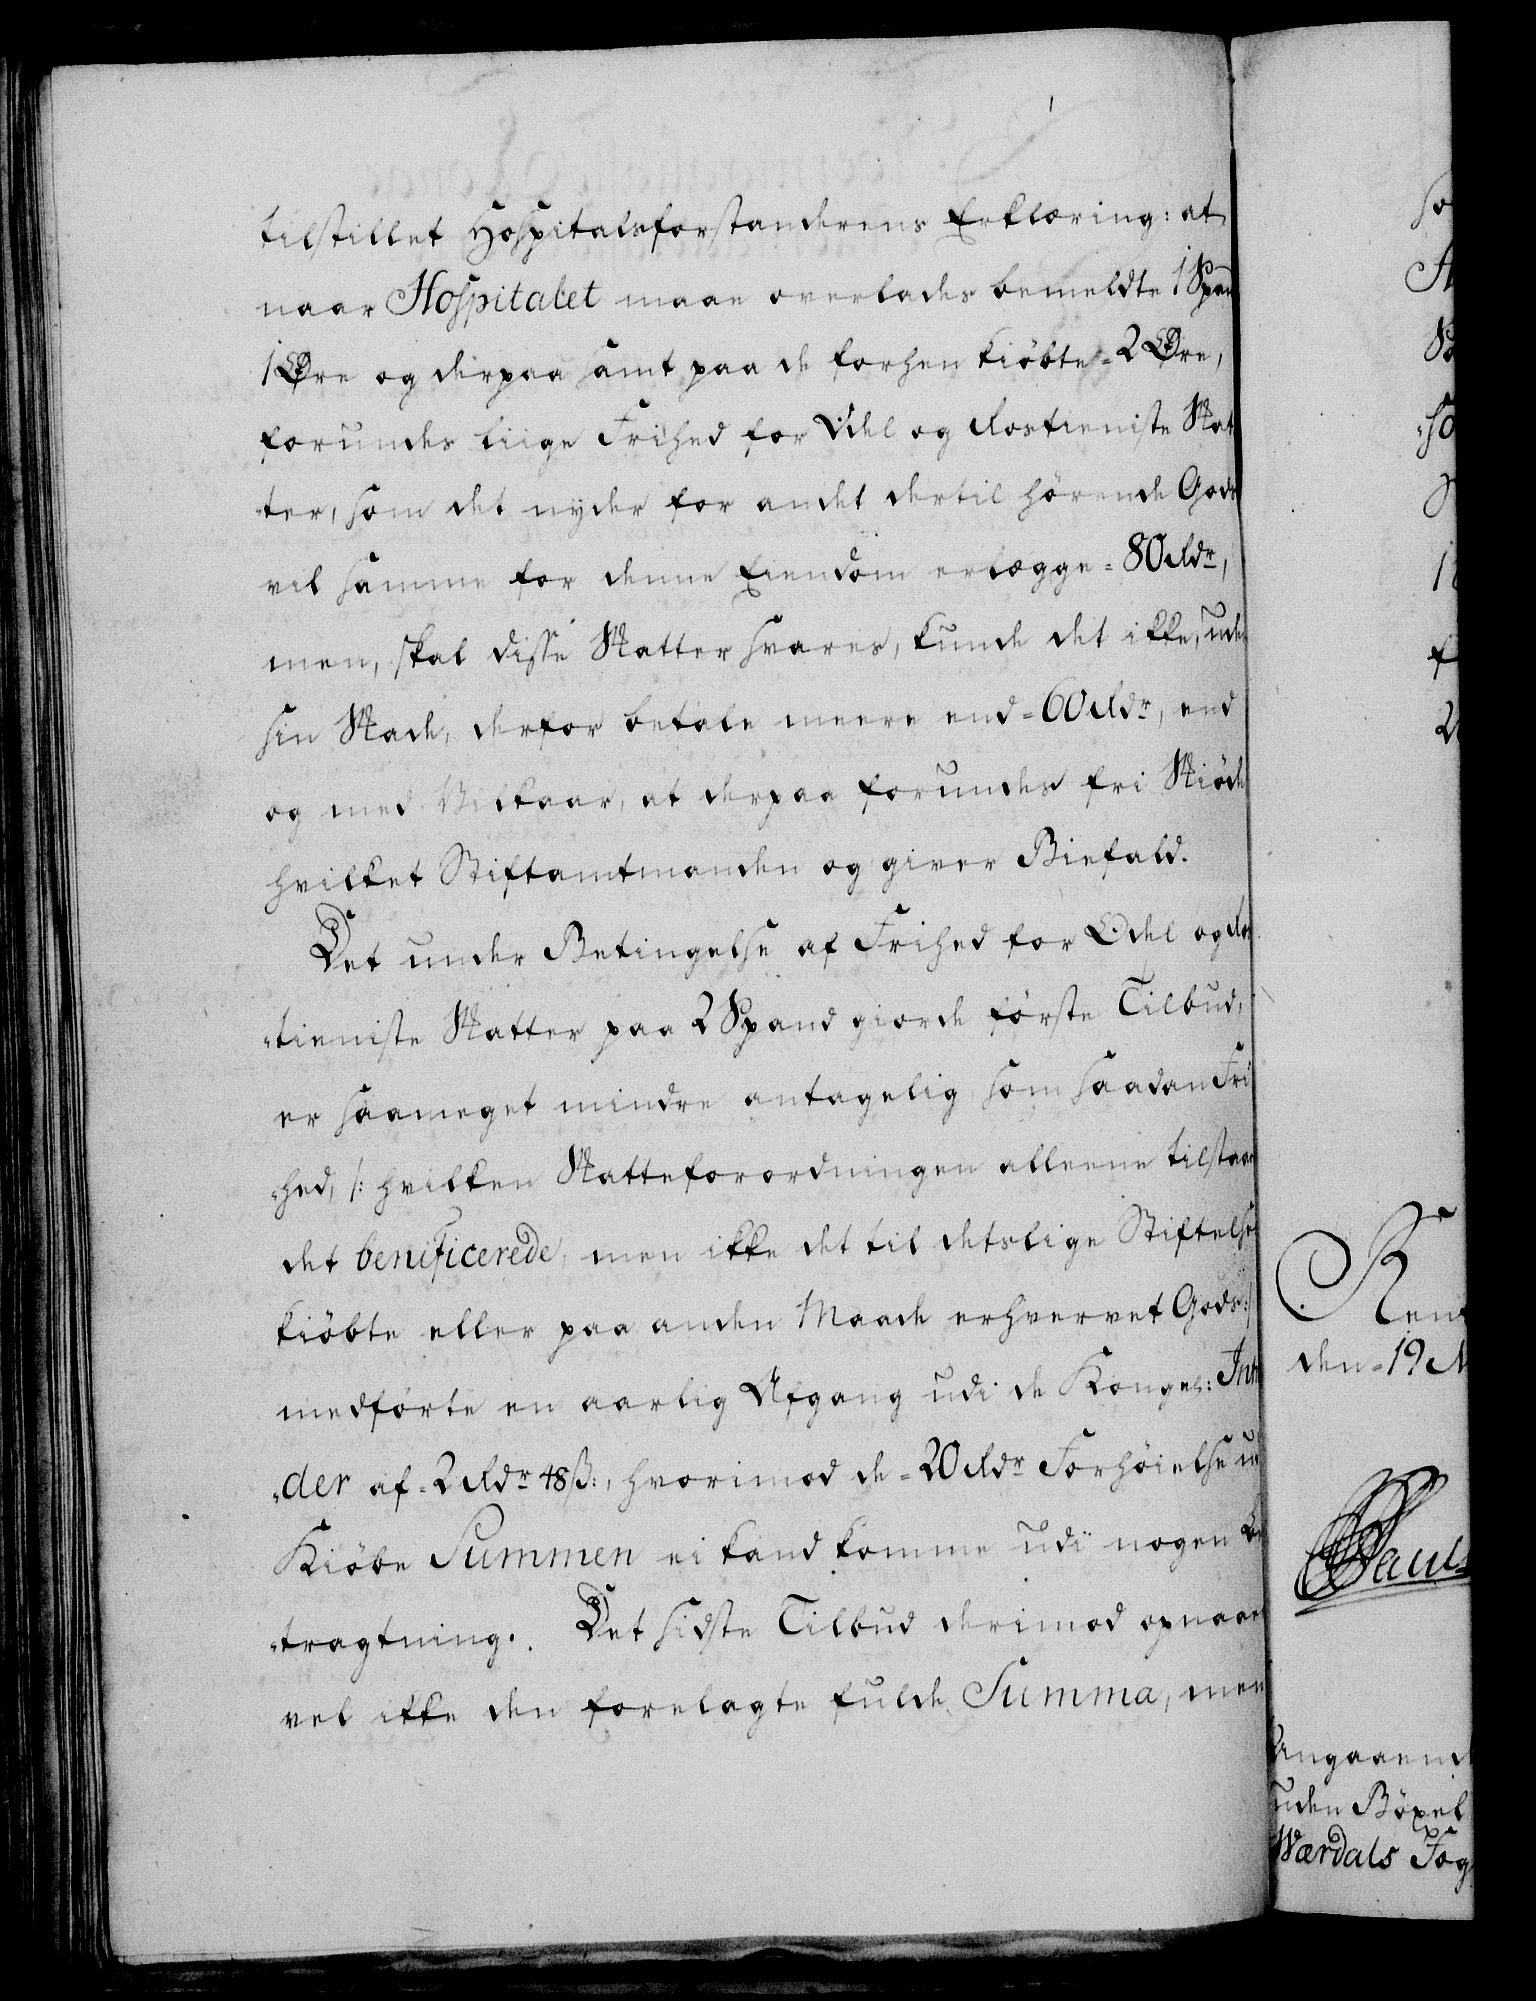 tilstillet Hospitalsforstanderens Erklæring: at
naar Hospitalet maae overlades bemeldte 1 Spand
1 Øre og derpaa samt paa de forhen kiøbte = 2 Øre,
forundes liige Frihed for Odel og Rostieniste Skat
"ter, som det nyder for andet dertil hörende Gods
vil samme for denne Eiendom erlægge = 80 Rdr,
men, skal disse Skatter svares, kunde det ikke, uden
sin Skade, derfor betale meere end = 60 Rdr, end
og med Vilkaar, at derpaa forundes fri Skiöde
hvilket Stiftamtmanden og giver Biefald.
Det under Betingelse af Frihed for Odel og Ros
"tieniste Skatter paa 2 Spand giorde förste Tilbud,
er saameget mindre antagelig som saadan Fri
"hed, /: hvilken Skatteforordningen alleene tilstaar
det benificerede, men ikke det til detslige Stiftelser
kiöbte eller paa anden Maade erhvervet Gods :/
medförte en aarlig Afgang udi de Kongel: Intra
"der af = 2 Rdr 48 ß:, hvorimod de = 20 Rdr Forhöielse udi
Kiöbe Summen ei kand komme udi nogen Be
"tragtning. Det sidste Tilbud derimod opnaaer
vel ikke den forelagte fulde Summa, men
Rent
den = 19 M
Angaaend
uden Böxel
Værdals Fog